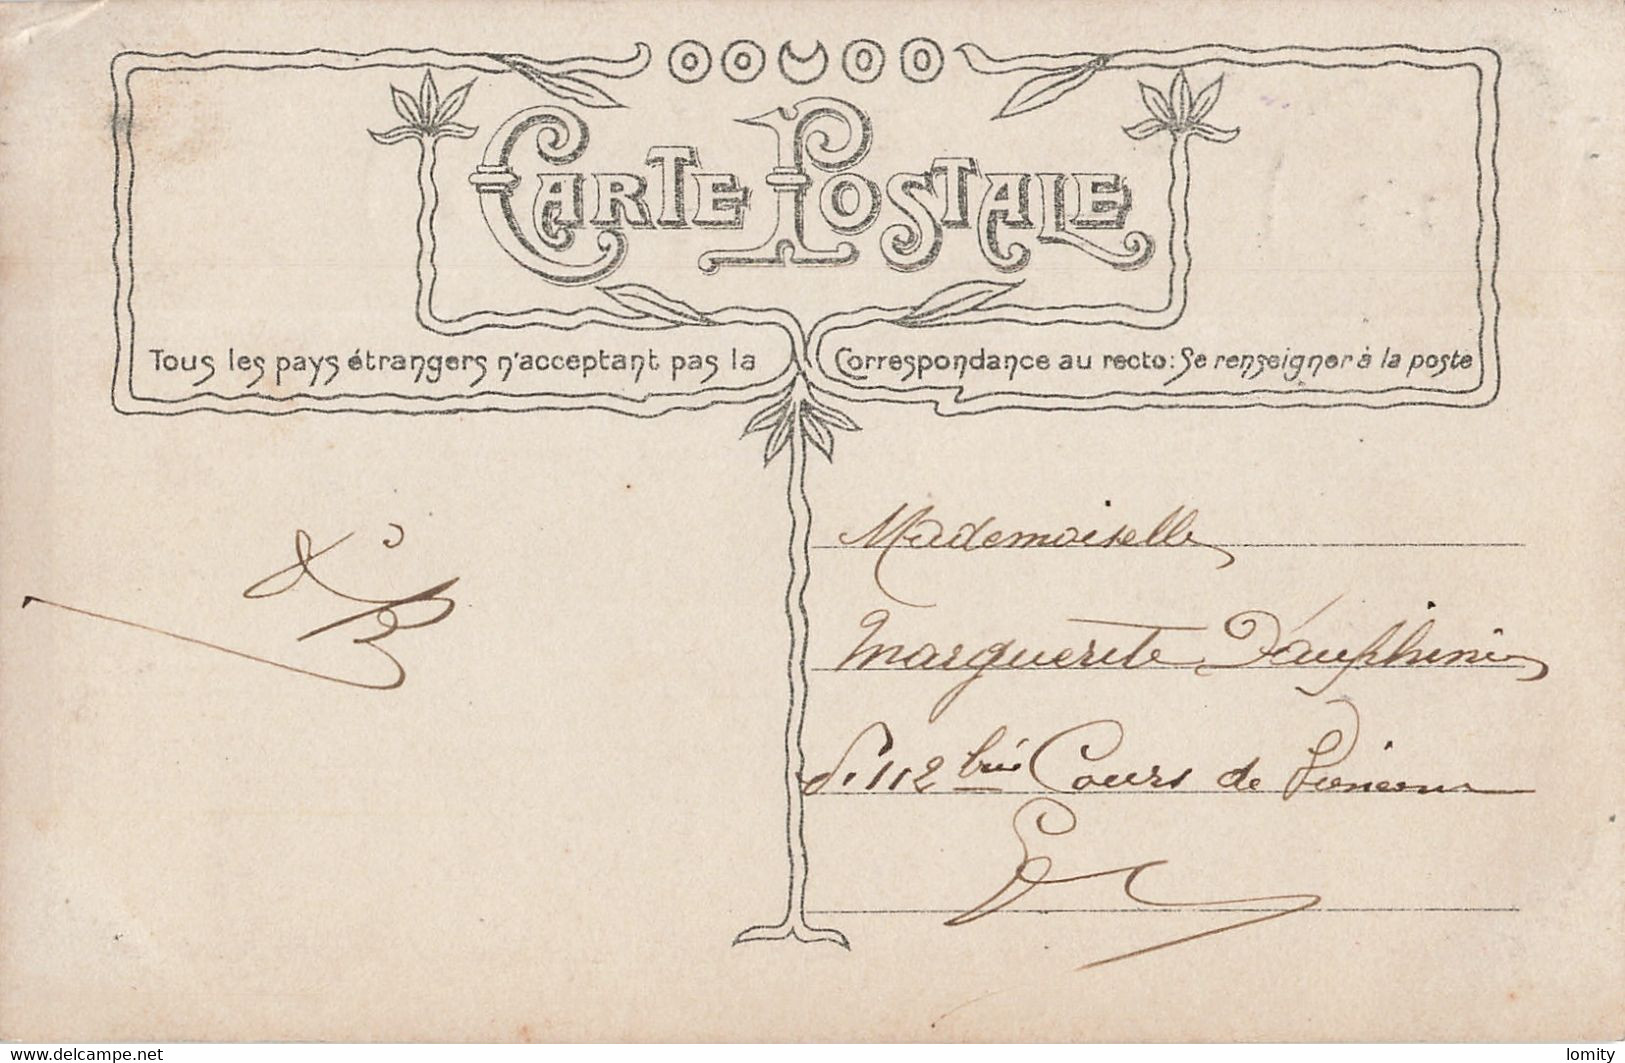 CARTE POSTALE
Tous les pays étrangers n'acceptant pas la Correspondance au recto: Se renseigner à la poste
Mademoiselle
Marguerite
112 bis Cours de
www.delcampe.net
lomity